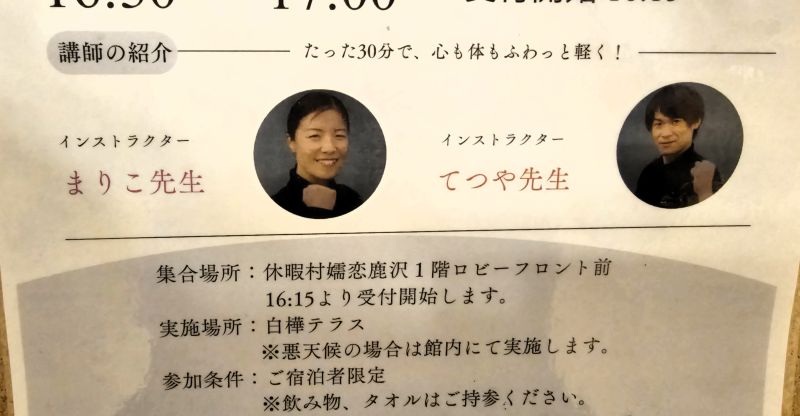 16:30 17:00 受付開始 16:15
講師の紹介 たった30分で、心も体もふわっと軽く！
インストラクター
まりこ先生
インストラクター
てつや先生
集合場所：休暇村嬬恋鹿沢1階ロビーフロント前
16:15より受付開始します。
実施場所：白樺テラス
※悪天候の場合は館内にて実施します。
参加条件：ご宿泊者限定
※飲み物、タオルはご持参ください。